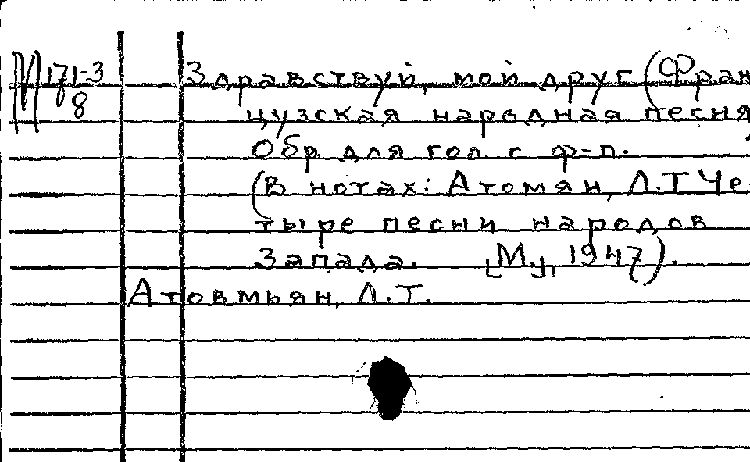 М 171-3
8
Здравствуй, мой друг (Фран
цузская народная песня
Обр для гол с ф-п.
(В нотах: Атомян, Л.Т Че
тыре песни народов
Запада. [М], 1947).
Атовмьян, Л.Т.